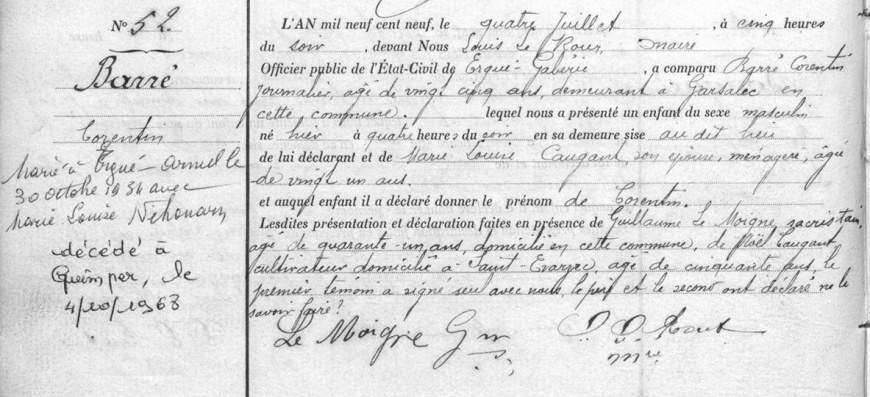 N° 52.
Barré
Corentin
Marié à Ergué-Armel le
30 octobre 1934 avec
Marie Louise Néhouarn
décédé à
Quimper, le
4/10/1968
L'AN mil neuf cent neuf, le quatre Juillet, à cinq heures
du soir, devant Nous Louis Le Rour, maire
Officier public de l'État-Civil de Ergué-Gabéric, a comparu Barré Corentin
journalier, âgé de vingt cinq ans, demeurant à Garsalec en
cette commune. lequel nous a présenté un enfant du sexe masculin
né hier à quatre heures du soir en sa demeure sise au dit lieu
de lui déclarant et de Marie Louise Caugant, son épouse, ménagère, âgée
de vingt un ans.
et auquel enfant il a déclaré donner le prénom de Corentin.
Lesdites présentation et déclaration faites en présence de Guillaume Le Moigne, sacristain,
âgé de quarante-un ans, domicilié en cette commune, de Noël Caugant,
cultivateur domicilié à Saint-Evarzec, âgé de cinquante ans, le
premier témoin a signé seul avec nous, le père et le second ont déclaré ne le
savoir faire.
Le Moigne Gm
mre